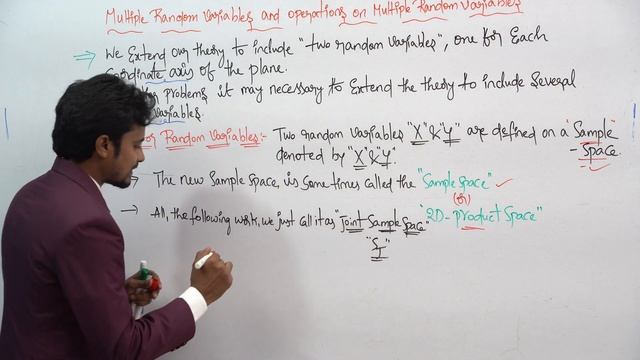 Multiple Random Variables and operations on Multiple Random Variables
⇒ We Extend our theory to include "two random variables", one for Each
Coordinate axis of the plane.
problems it may necessary to Extend the theory to include Several
variables.
Random Variables:- Two random variables "X" & "Y" are defined on a "Sample
-Space
denoted by "X" & "Y".
→ The new Sample space, is some times called the "Sample space" ✓
(or)
→ All, the following work, we just call it as "Joint Sample Space" "2D-product Space"
"SJ"